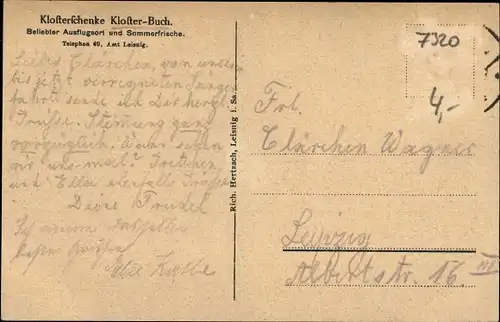 Klosterschenke Kloster-Buch.
Beliebter Ausflugsort und Sommerfrische.
Telephon 40, Amt Leisnig.
Liebes Clärchen, von unserer
bis jetzt verregneten Sänger-
fahrt sende ich Dir herzl.
Grüße. Stimmung ganz
vorzüglich. Wann sehen
wir uns mal? Gretchen
und Ella ebenfalls Grüße
Deine Trudel
besten
Rich. Hertzsch, Leisnig i. Sa.
7320
4,-
Frl.
Clärchen Wagner
Leipzig
Albertstr. 16 III